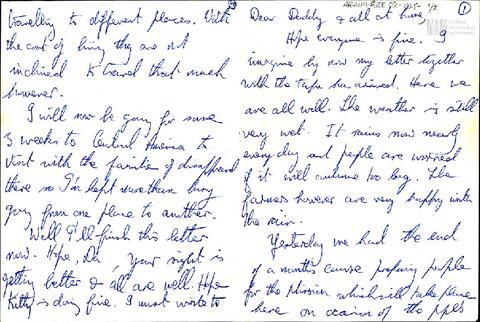 travelling to different places. With
the cost of living they are not
inclined to travel that much
however.
I will now be going for some
3 weeks to Central America to
visit with the families of disappeared
there so I'm kept more than busy
going from one place to another.
Well I'll finish this letter
now. Hope, Da, your sight is
getting better & all are well. Hope
Kitty is doing fine. I must write to
1/2
1
Dear Daddy & all at home,
Hope everyone is fine. I
imagine by now my letter together
with the tape has arrived. Here we
are all well. The weather is still
very wet. It rains now nearly
every day and people are worried
if it will continue too long. The
farmers however are very happy with
the rain.
Yesterday we had the end
of a months course preparing people
for the Mission which will take place
here on occasion of the Popes